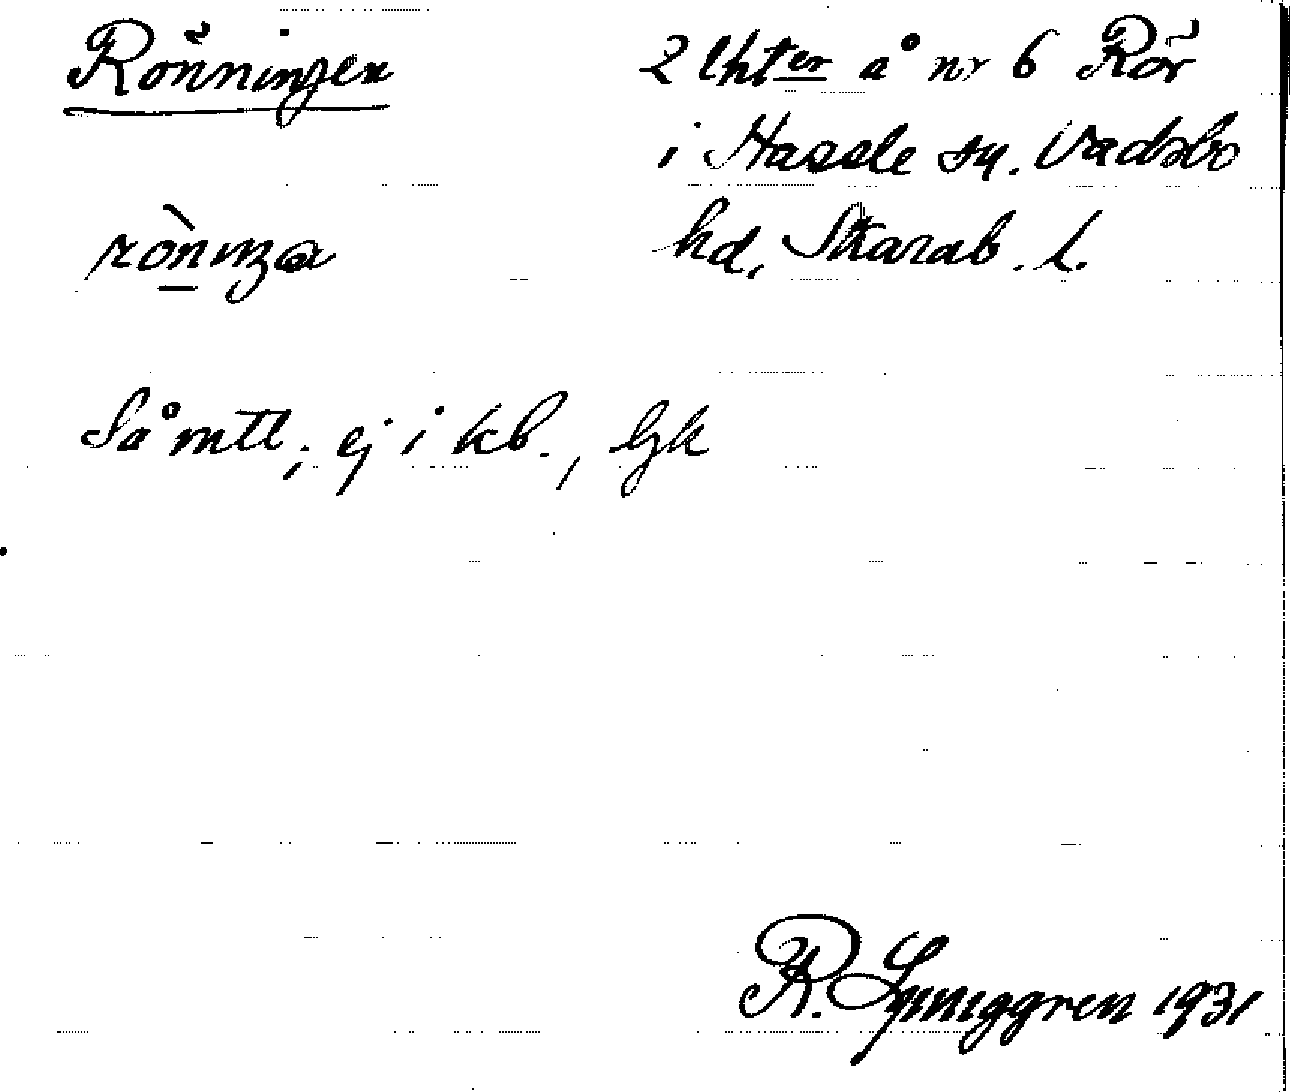 Rönningen
2 lhter å nr 6 Rör
i Hassle sn. Vadsbo
hd, Skarab. l.
Så mtl; ej i kb.,
R. Ljunggren 1931